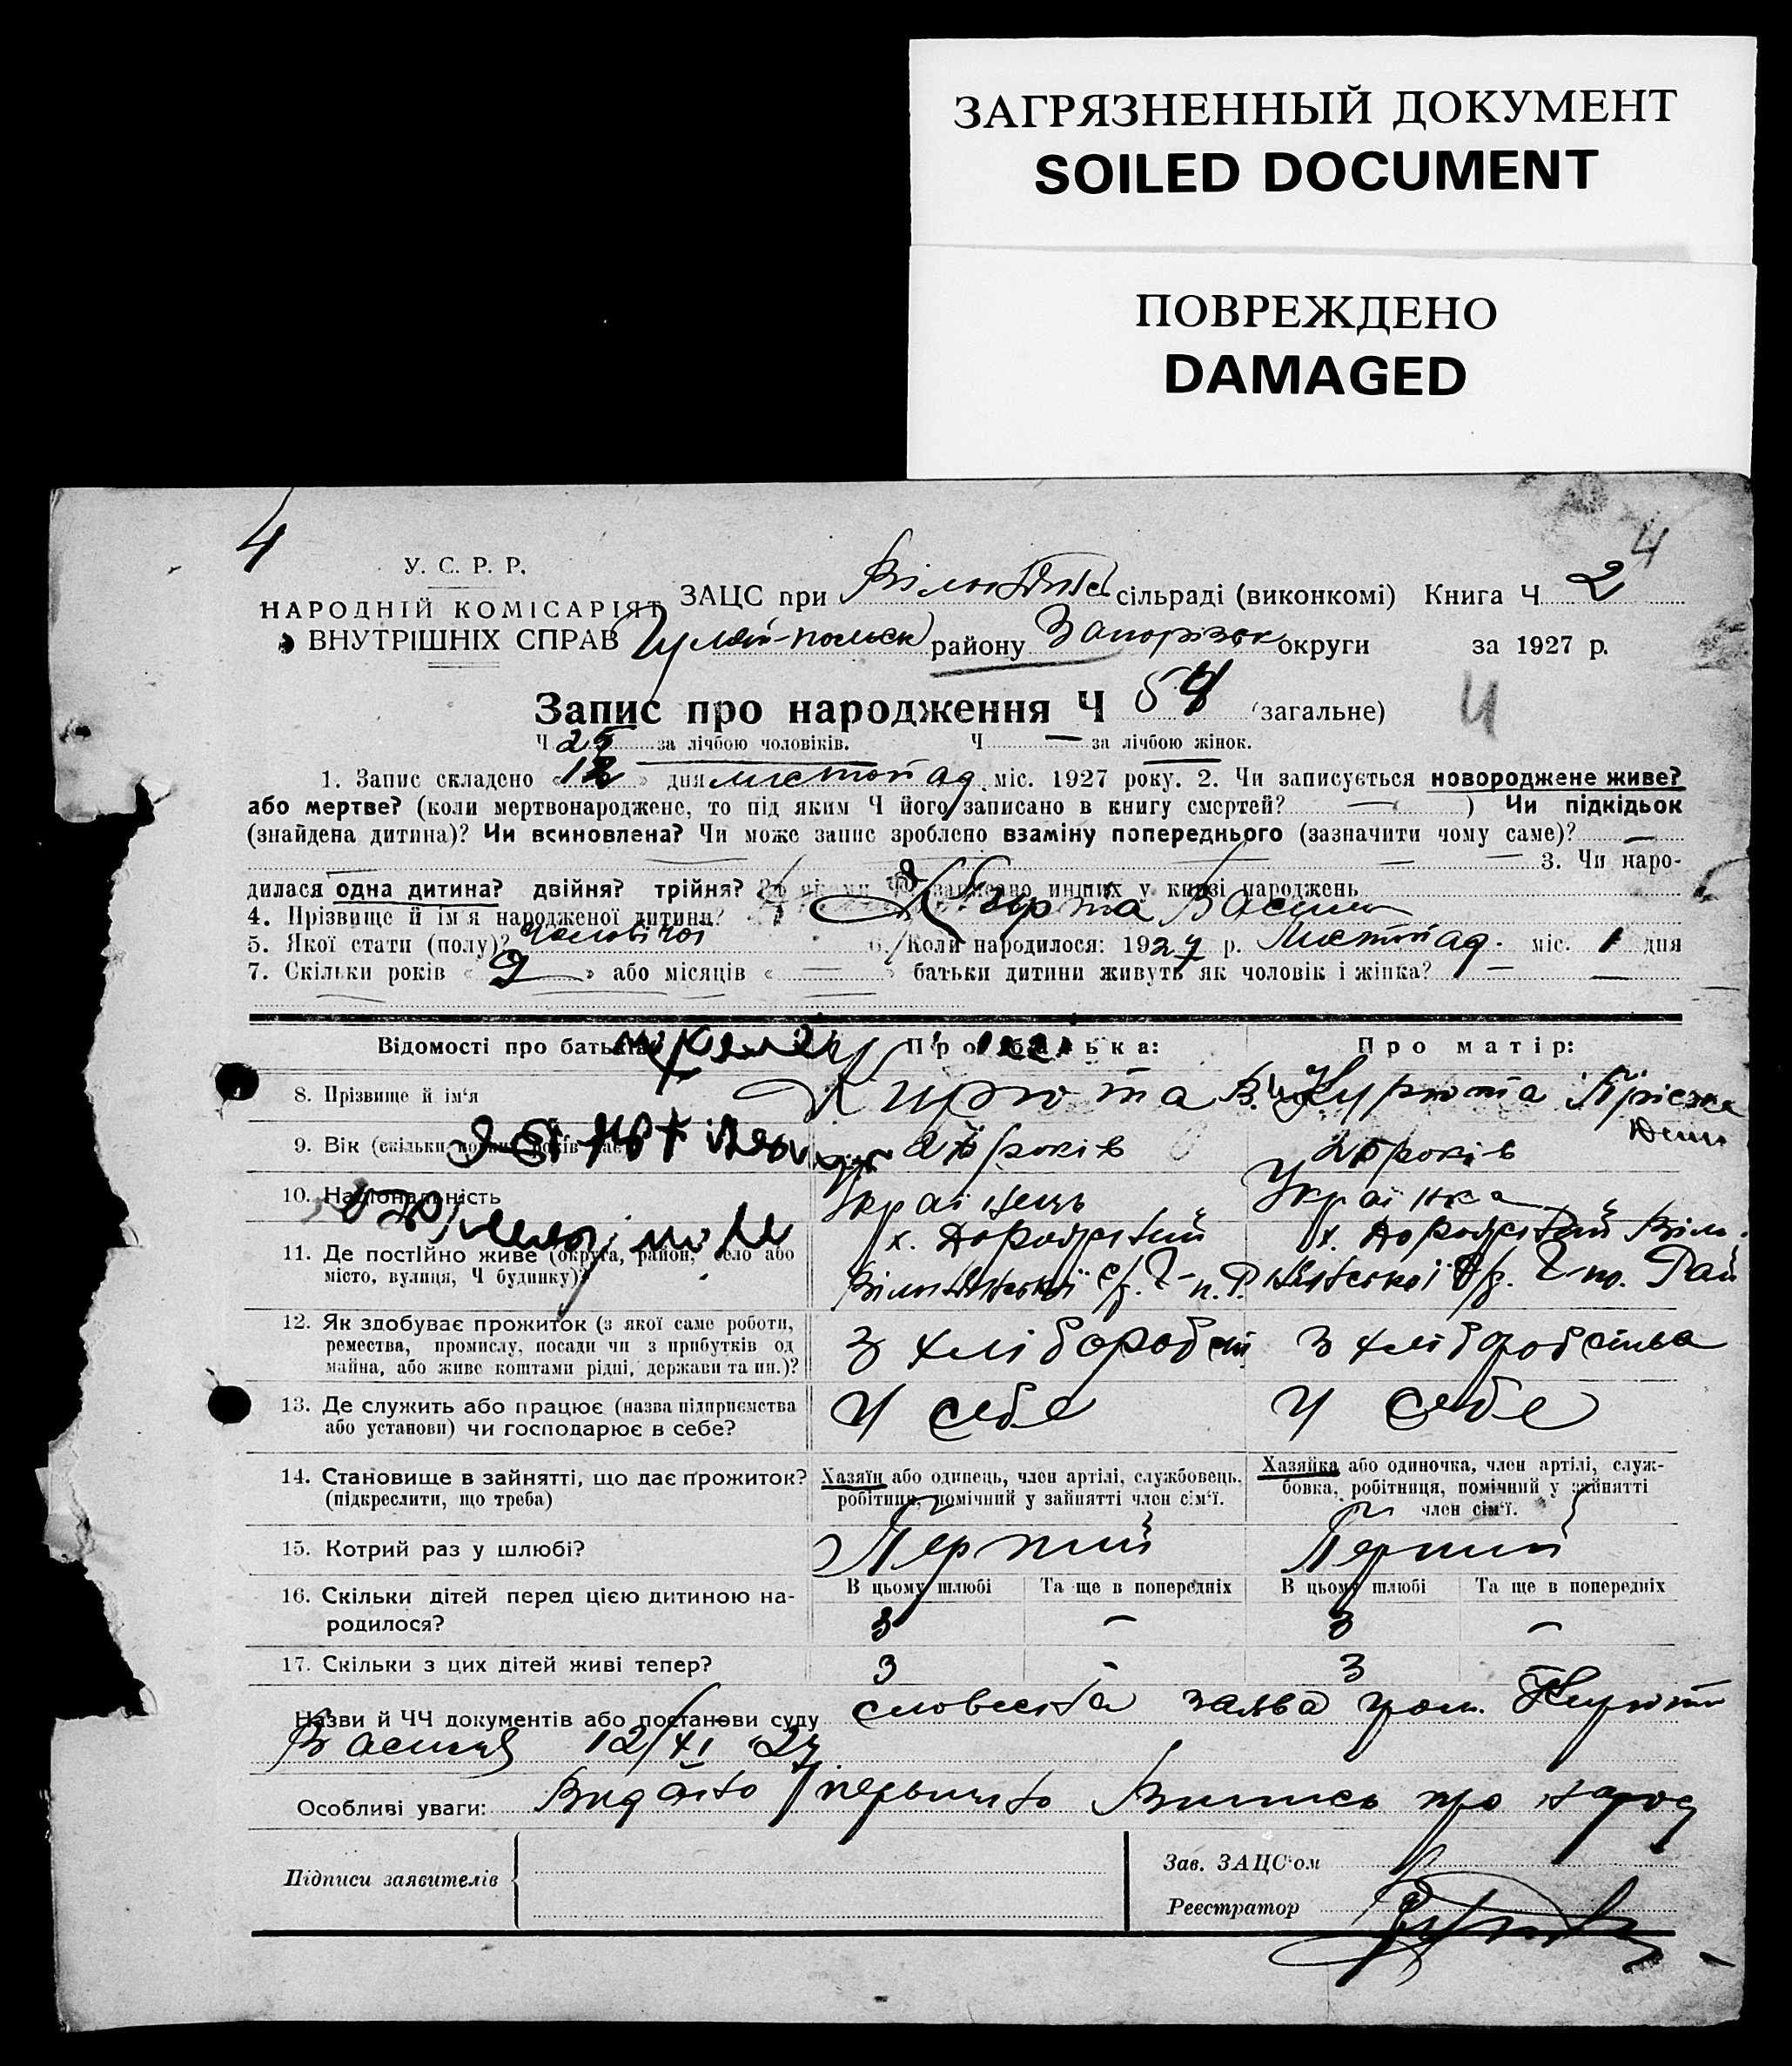 ЗАГРЯЗНЕННЫЙ ДОКУМЕНТ
SOILED DOCUMENT
ПОВРЕЖДЕНО
DAMAGED
4
4
У. С. Р. Р.
НАРОДНІЙ КОМІСАРІЯТ
ВНУТРІШНІХ СПРАВ
ЗАЦС при сільраді (виконкомі) Книга Ч 2
Гуляй-польск району Запорізьк округи за 1927 р.
Запис про народження Ч (загальне)
4
Ч 25 за лічбою чоловіків. Ч — за лічбою жінок.
1. Запис складено « 12 » дня листопад міс. 1927 року. 2. Чи записується новороджене живе?
або мертве? (коли мертвонароджене, то під яким Ч його записано в книгу смертей? — ) Чи підкідьок
(знайдена дитина)? Чи всиновлена? Чи може запис зроблено взаміну попереднього (зазначити чому саме)? —
3. Чи наро-
дилася одна дитина? двійня? трійня? записано инших у книзі народжень
4. Прізвище й ім'я народженої дитини? Василь
5. Якої стати (полу)? чоловічої 6. Коли народилося: 1927 р. Листопад міс. 1 дня
7. Скільки років « 9 » або місяців « — » батьки дитини живуть як чоловік і жінка? —
Відомості про батьків Про батька: Про матір:
8. Прізвище й ім'я Кирюта В. Кирюта
9. Вік років років
10. Національність Українець Українка
11. Де постійно живе (округа, район, село або
місто, вулиця, Ч будинку)?
12. Як здобуває прожиток (з якої саме роботи,
ремества, промислу, посади чи з прибутків од
майна, або живе коштами рідні, держави та ин.)?
З хліборобст З хліборобства
13. Де служить або працює (назва підприємства
або установи) чи господарює в себе?
У себе У себе
14. Становище в зайнятті, що дає прожиток?
(підкреслити, що треба)
Хазяїн або одинець, член артілі, службовець,
робітник, помічний у зайнятті член сім'ї.
Хазяйка або одиночка, член артілі, служ-
бовка, робітниця, помічний у зайнятті
член сім'ї.
15. Котрий раз у шлюбі? Перший Перший
В цьому шлюбі Та ще в попередніх В цьому шлюбі Та ще в попередніх
16. Скільки дітей перед цією дитиною на-
родилося?
3 – 3 –
17. Скільки з цих дітей живі тепер? 3 - 3 –
Назви й ЧЧ документів або постанови суду словесна заява гром. Кирюти
Василя 12/XI 27
Особливі уваги: Видано первичну Выпись про народ
Підписи заявителів
Зав. ЗАЦС'ом
Реєстратор